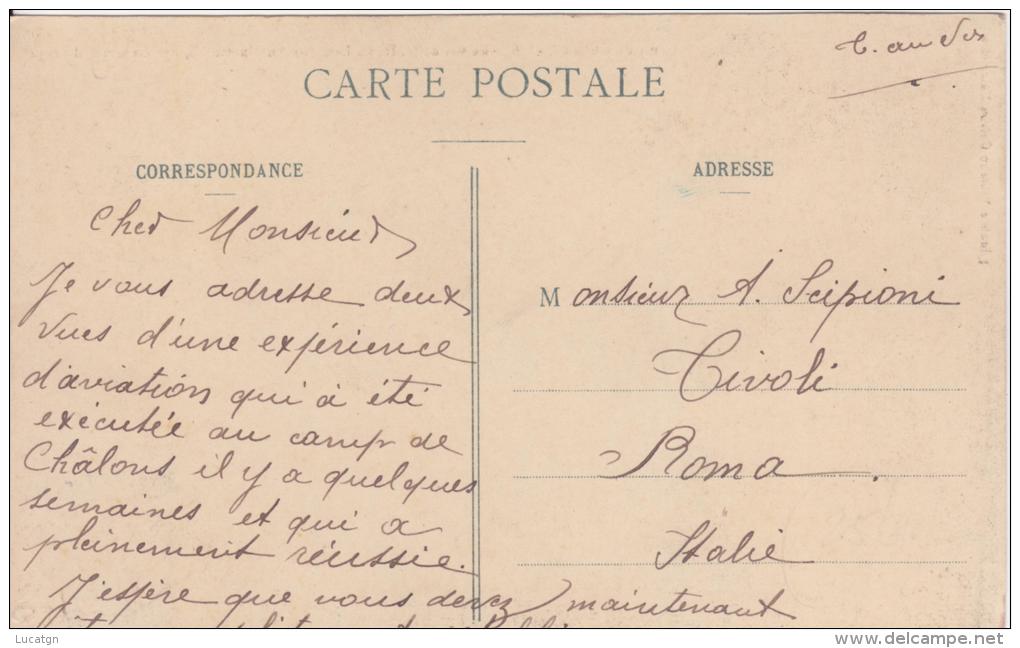 T. au dos
CARTE POSTALE
CORRESPONDANCE
ADRESSE
Cher Monsieur
Je vous adresse deux
vues d'une expérience
d'aviation qui à été
exécutée au camp de
Châlons il y a quelques
semaines et qui a
pleinement réussie.
J'espère que vous devez maintenant
Monsieur A. Scipioni
Tivoli
Roma
Italie
Lucatgn
delcampe.net